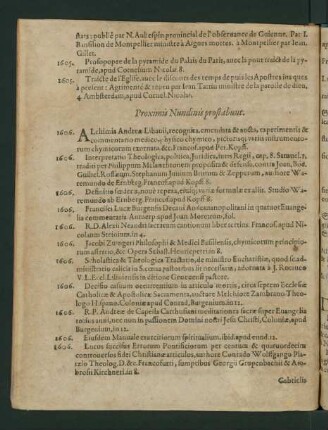 stara: publié par N. Aubespin provincial de l'obseruance de Guienne. Par I.
Banſſion de Montpellier miniſtre à Aigues mortes. à Montpelier par Iean
Gillet.
1605. Proſopopee de la pyramide du Palais du Paris, auec la pourtraict de la py-
ramide, apud Cornelium Nicolai 8.
1605. Traicte de l'Egliſe, auec le diſcours des temps depuis les Apoſtres iusques
à preſent: Agrimenté & reueu par Iean Taffin miniſtre de la parolle de dieu,
4 Amſterdam, apud Cornel. Nicolai.
Proximis Nundinis proſtabunt.
1606. Alchimia Andreæ Libauii, recognita, emendata & aucta, experimentis &
commentario medico-phyſico chymico, picturis variis inſtrumentorum
rerum chymicorum exornata, &c. Francof. apud Pet. Kopff.
1606. Interpretatio Theologica, politica, Iuridica, ſuper Ragiſ. cap. 8. Samuel. 1.
tradita per Philippum Melanchthonem
Guilhel. Roſſæum, Stephanum Iunium Brutum & Zepperum, authore Wa-
remundo de Erenberg. Francof. apud Kopff 8.
1606. Deſſini fœdere, noua repetitio, varia forma exaſſis. Studio Wa-
remundi ab Ernberg. Francof. apud Kopff 8.
1606. Franciſci Lucæ Burgenſis Decani Audomaropolitani in quatuor Euange-
lia commentaria. Antuerp. apud Ioan Moretum, fol.
1606. R. D. Alexii Neander tractatum cantionum liber tertius Francof. apud Ni-
colaum Steinium. in 4.
1606. Iacobi Zuingeri Philoſophi & Medici Baſilienſis, chymicorum principio-
rum aſſertio, &c. Opera Sebaſt. Heuricpetri in 8.
1606. Scholaſtica & Theologica Tractatio, de miniſtro Euchariſtiæ, quod ſe ad-
miniſtratio calicis in Sacrem paſtoribus it neceſſaria, adornata à I. Rocolco
V. L. Eccl. Diuionenſis in editione Geneuenſi paſtore.
1606. Deciſio caſuum occurrentium in articulo mortis, circa ſeptem Eccleſiæ
Catholicæ & Apoſtolicæ Sacramenta, authore Matthia de Zambrano Theo-
logo Hiſpano, Coloniæ apud Conrad. Burgendum, in 12.
1606. R. P. Andreæ de Capella Carthuſiani meditationes ſacræ ſuper Euangelia
totius anni, nec non in paſſionem Domini noſtri Ieſu Chriſti, Coloniæ, apud
Burgendum, in 12.
1606. Eiuſdem Manuale exercitiorum ſpiritualium, ibid. apud eund. 12.
1606. Locus ſucceſſor Errorum Pontificiorum per centum & quatuordecim
controuerſias fidei Chriſtianæ articulos, authore Conrado Wolffgango Pla-
tzio Theolog. D. &c. Francofurti, ſumptibus Georgii Gropenbachii & Am-
broſii Kirchneri. in 8.
Gabrielis